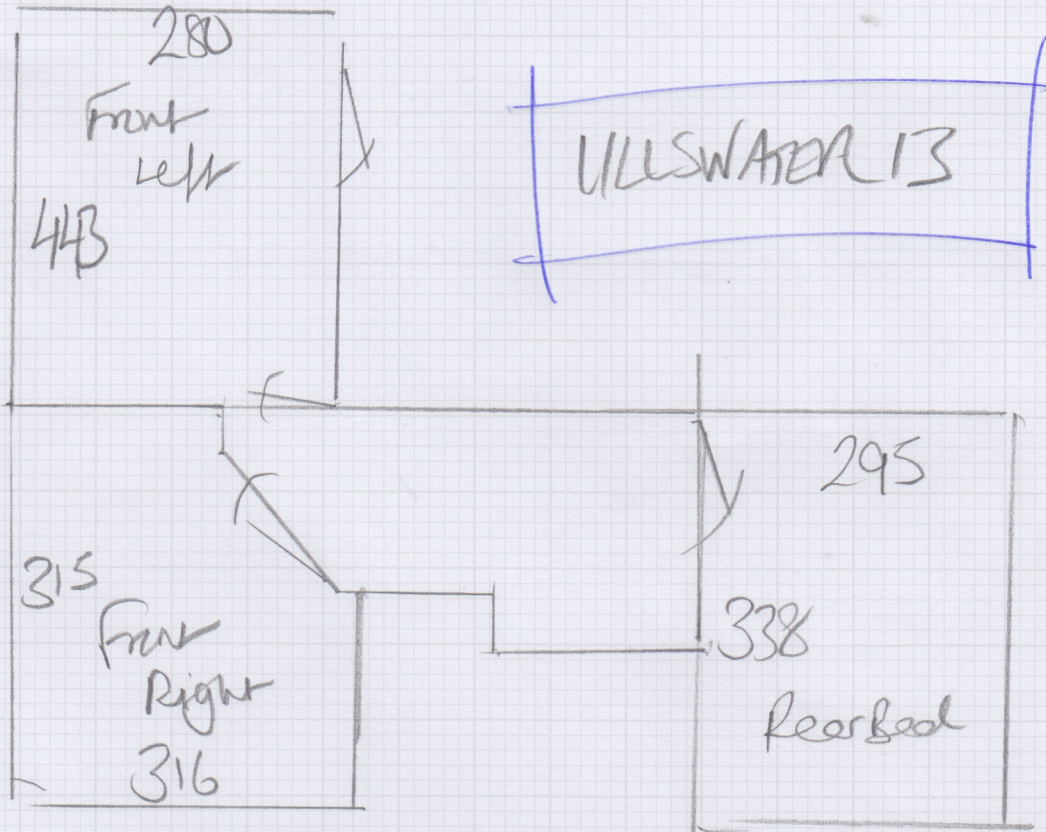 280
Front
Left
443
ULLSWATER 13
295
315
Front
Right
316
338
Rear Bed